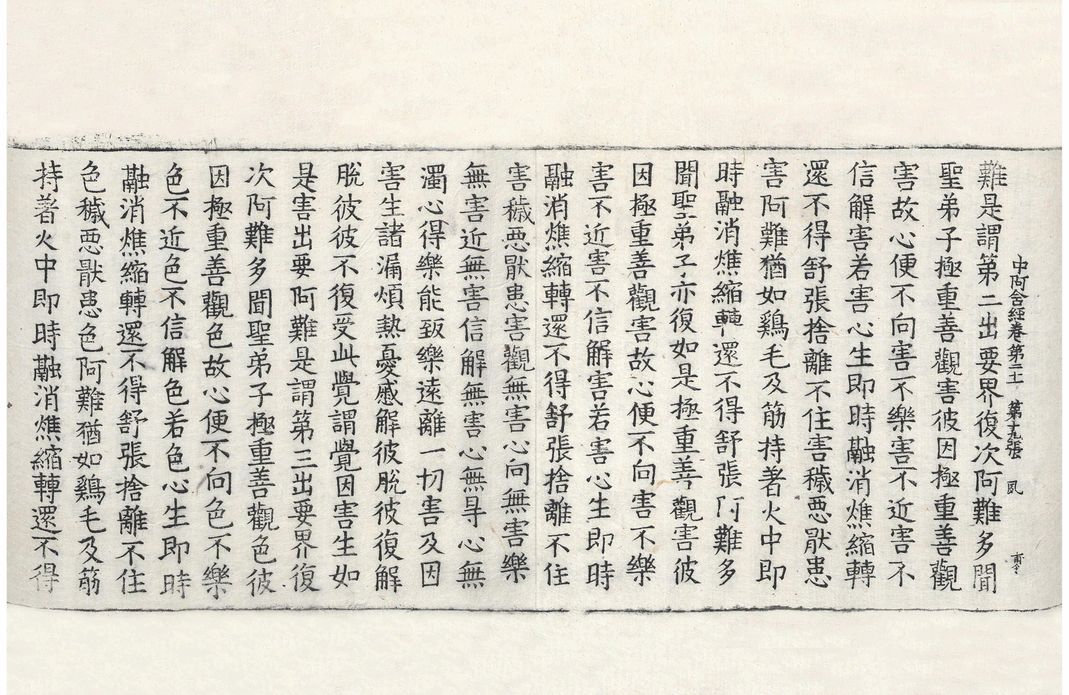 中阿含經卷第二十一 第十九張 夙
難是謂第二出要界復次阿難多聞
聖弟子極重善觀害彼因極重善觀
害故心便不向害不樂害不近害不
信解害若害心生即時融消燋縮轉
還不得舒張捨離不住害穢悪猒患
害阿難猶如鷄毛及筋持著火中即
時融消燋縮轉還不得舒張阿難多
聞聖弟子亦復如是極重善觀害彼
因極重善觀害故心便不向害不樂
害不近害不信解害若害心生即時
融消燋縮轉還不得舒張捨離不住
害穢悪猒患害觀無害心向無害樂
無害近無害信解無害心無㝵心無
濁心得樂能致樂遠離一切害及因
害生諸漏煩熱憂慼解彼脫彼復解
脫彼彼不復受此覺謂覺因害生如
是害出要阿難是謂第三出要界復
次阿難多聞聖弟子極重善觀色彼
因極重善觀色故心便不向色不樂
色不近色不信解色若色心生即時
融消燋縮轉還不得舒張捨離不住
色穢悪猒患色阿難猶如鷄毛及筋
持著火中即時融消燋縮轉還不得